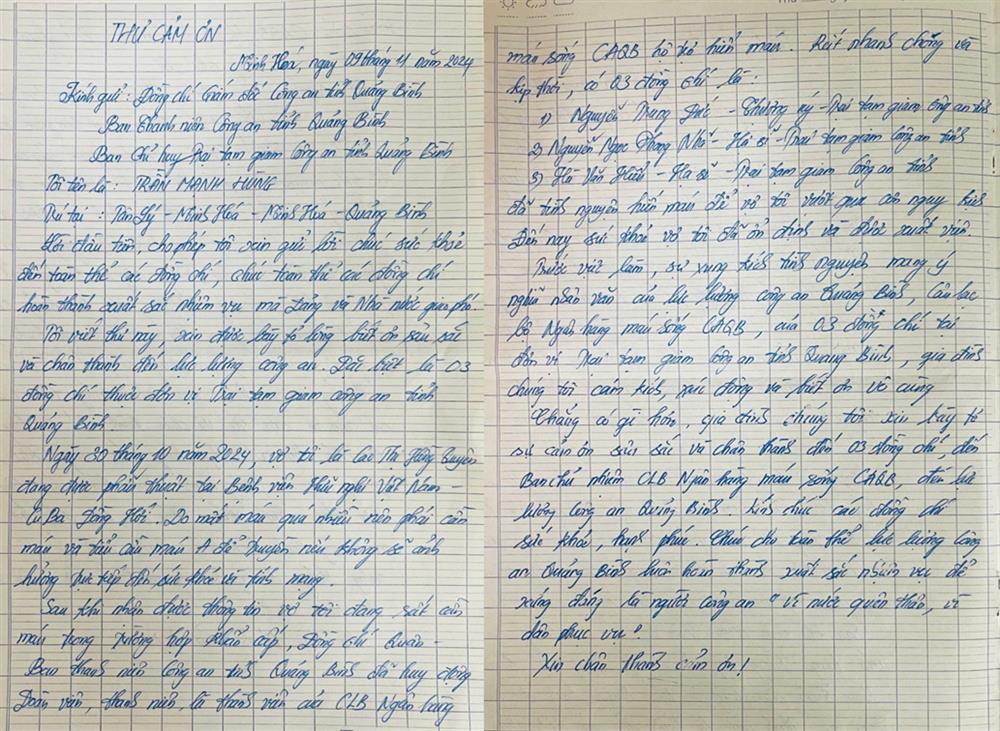 THƯ CẢM ƠN
Minh Hoá, ngày 09 tháng 11 năm 2024
Kính gửi: Đồng chí Giám đốc Công an tỉnh Quảng Bình
Ban Thanh niên Công an tỉnh Quảng Bình
Ban Chỉ huy Trại tạm giam Công an tỉnh Quảng Bình
Tôi tên là: TRẦN MẠNH HÙNG
Trú tại: Tân Lý - Minh Hoá - Minh Hoá - Quảng Bình
Lời đầu tiên, cho phép tôi xin gửi lời chúc sức khoẻ
đến toàn thể các đồng chí, chúc toàn thể các đồng chí
hoàn thành xuất sắc nhiệm vụ mà Đảng và Nhà nước giao phó.
Tôi viết thư này, xin được bày tỏ lòng biết ơn sâu sắc
và chân thành đến lực lượng công an. Đặc biệt là 03
đồng chí thuộc đơn vị Trại tạm giam công an tỉnh
Quảng Bình.
Ngày 30 tháng 10 năm 2024, vợ tôi là Cao Thị Hồng Quyên
đang được phẫu thuật tại Bệnh viện Hữu nghị Việt Nam -
Cu Ba Đồng Hới. Do mất máu quá nhiều nên phải cần
máu và tiểu cầu máu A để truyền nếu không sẽ ảnh
hưởng trực tiếp đến sức khoẻ và tính mạng.
Sau khi nhận được thông tin vợ tôi đang rất cần
máu trong trường hợp khẩn cấp, Đồng chí Quân -
Ban thanh niên Công an tỉnh Quảng Bình đã huy động
Đoàn viên, thanh niên, là thành viên của CLB Ngân hàng
máu sống CAQB hỗ trợ hiến máu. Rất nhanh chóng và
kịp thời, có 03 đồng chí là:
1) Nguyễn Trung Đức - Thượng uý - Trại tạm giam Công an tỉnh
2) Nguyễn Ngọc Phong Nhã - Hạ sĩ - Trại tạm giam Công an tỉnh
3) Hà Văn Hiếu - Hạ sĩ - Trại tạm giam Công an tỉnh
đã tình nguyện hiến máu để vợ tôi vượt qua cơn nguy kịch
Đến nay sức khoẻ vợ tôi đã ổn định và được xuất viện
Trước việc làm, sự xung kích tình nguyện mang ý
nghĩa nhân văn của lực lượng công an Quảng Bình, Câu lạc
bộ Ngân hàng máu sống CAQB, của 03 đồng chí tại
đơn vị Trại tạm giam Công an tỉnh Quảng Bình, gia đình
chúng tôi cảm kích, xúc động và biết ơn vô cùng
Chẳng có gì hơn, gia đình chúng tôi xin bày tỏ
sự cảm ơn sâu sắc và chân thành đến 03 đồng chí, đến
Ban chủ nhiệm CLB Ngân hàng máu sống CAQB, đến lực
lượng Công an Quảng Bình. Kính chúc các đồng chí
sức khoẻ, hạnh phúc. Chúc cho toàn thể lực lượng công
an Quảng Bình luôn hoàn thành xuất sắc nhiệm vụ để
xứng đáng là người công an "Vì nước quên thân, vì
dân phục vụ".
Xin chân thành cảm ơn!